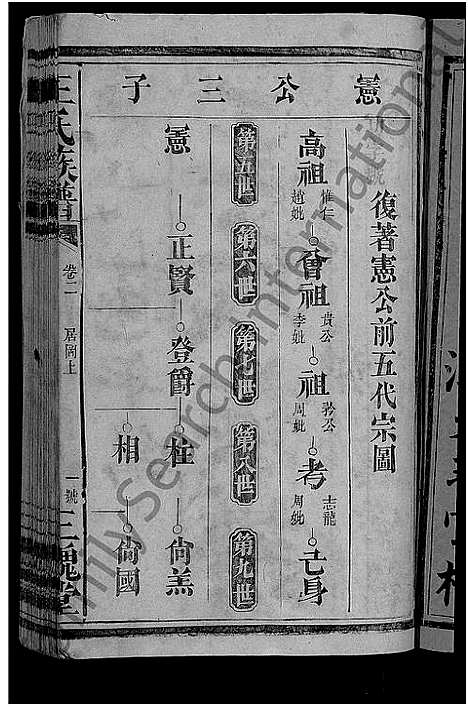 憲公三子
復著憲公前五代宗圖
高祖 惟仁 趙妣 曾祖 貴公 李妣 祖 矜公 周妣 考 志龍 周妣 亡身
第五世 第六世 第七世 第八世 第九世
憲 正賢 登爵 柱 尚羔
相 尚國
王氏族譜 卷二 居圖上 一號 三槐堂
FamilySearch International